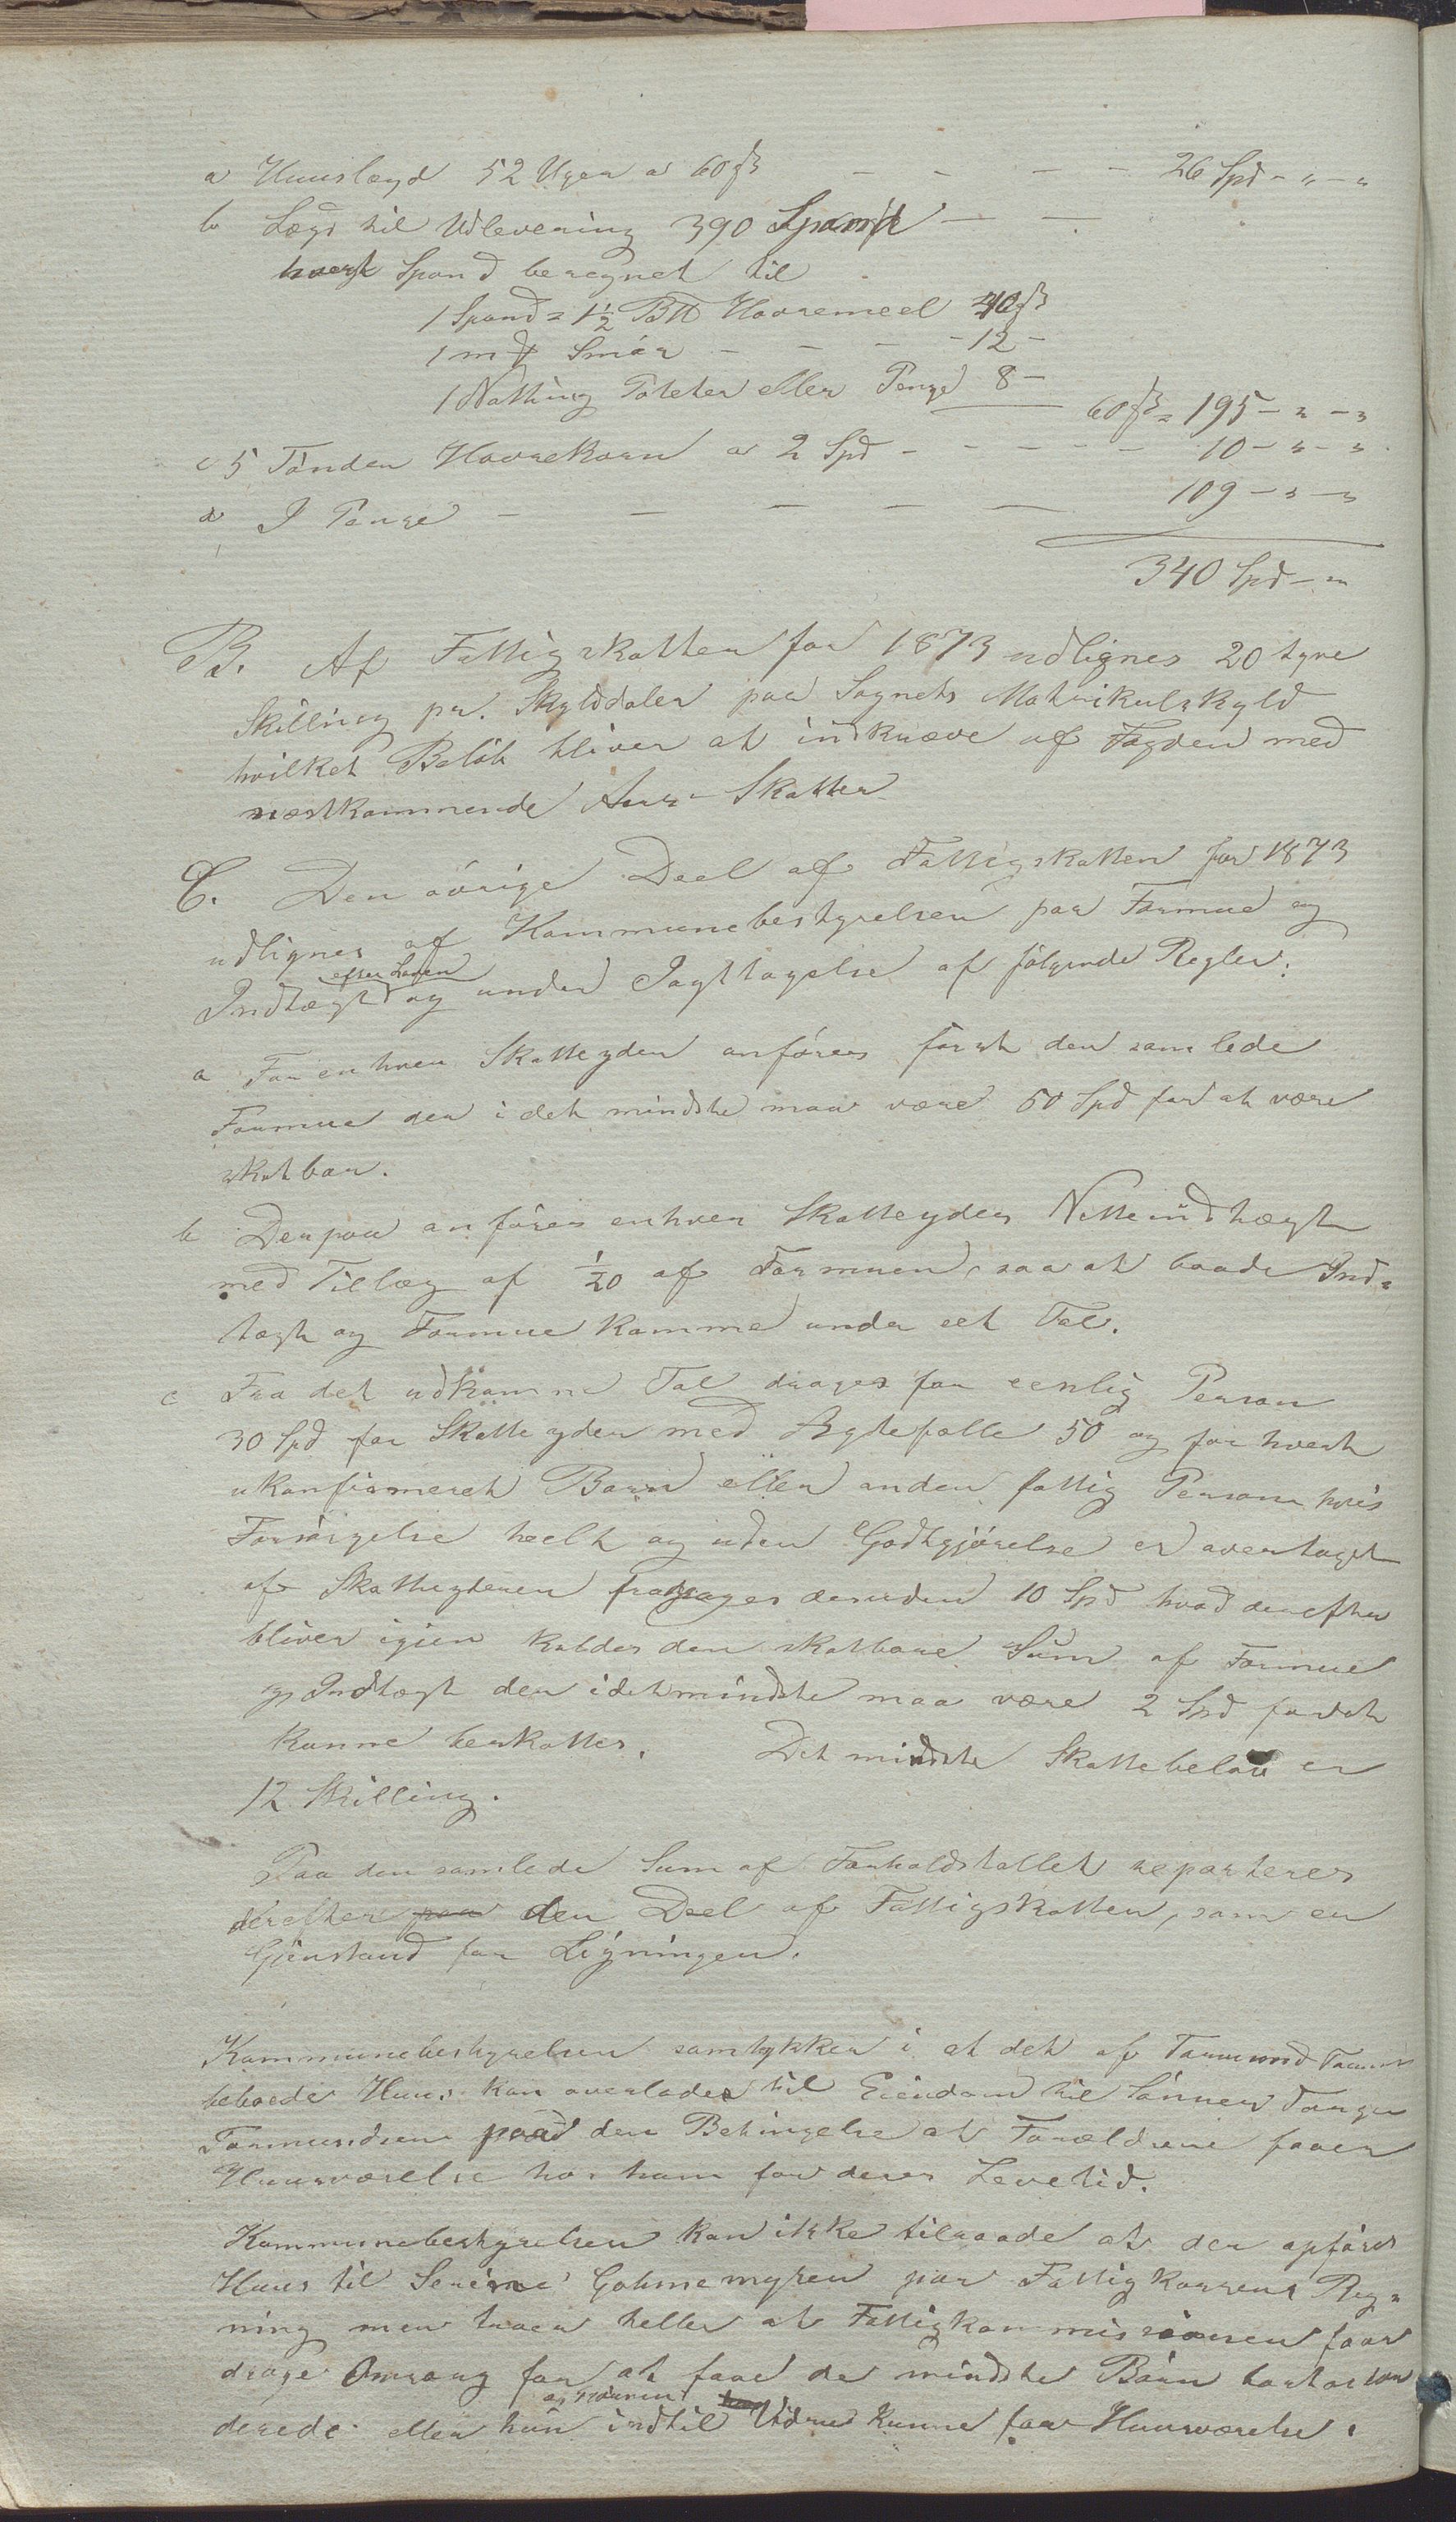 a Huuslægd 52 Uger a 60 ß - - - - 26 Spd - " - "
b Lægd til Udlevering 390 Spand - -
hvert Spand beregnet til
1 Spand = 1½ B℔ Havremeel 40 ß
1 m℔ Smör - - - - 12 -
1 Notting Poteter eller Penge 8 -
60 ß = 195 - " - "
c 5 Tönder Havrekorn a 2 Spd - - - - 10 - " - "
d I Penge - - - - - 109 - " - "
340 Spd - "
B. Af Fattigskatten for 1873 udlignes 20 tyve
Skilling pr. Skylddaler paa Sognets Matrikulskyld
hvilket Belöb bliver at indkræve af Fogden med
næstkommende Aars-Skatter
C. Den övrige Deel af Fattigskatten for 1873
udlignes af Kommunebestyrelsen paa Formue og
Indtægt efter Loven og under Iagttagelse af fölgende Regler:
a For enhver Skatteyder anföres först den samlede
Formue der i det mindste maa være 50 Spd for at være
skatbar.
b Derpaa anföres enhver Skatteyders Nettoindtægt
med Tillæg af 1/20 af Formuen, saa at baade Ind=
tægt og Formue komme under eet Tal.
c Fra det udkomne Tal drages for eenlig Person
30 Spd for Skatteyder med Ægtefælle 50 og for hvert
ukonfirmeret Barn eller anden fattig Person hvis
Forsörgelse heelt og uden Godtgjörelse er overtaget
af Skatteyderen fradrages desuden 10 Spd hvad derefter
bliver igjen kaldes den skatbare Sum af Formue
og Indtægt der idetmindste maa være 2 Spd for at
kunne beskattes. Det mindste Skattebelöb er
12 Skilling.
Paa den samlede Sum af Forholdstallet reparteres
derefter paa den Deel af Fattigskatten, som er
Gjenstand for Ligningen.
Kommunebestyrelsen samtykker i at det af Tormund
beboede Huus kan overlades til Eiendom til Sönnen
Tormundsen paa den Betingelse at Forældrene faaer
Huusværelse hos ham for deres Levetid.
Kommunebestyrelsen kan ikke tilraade at der opföres
Huus til Serine Gohmemyren paa Fattigkassens Reg=
ning men troer heller at Fattigkommissionen faar
drage Omsorg for at faae de mindste Börn
derede eller hun indtil Vidre kunne faae Huusværelse.